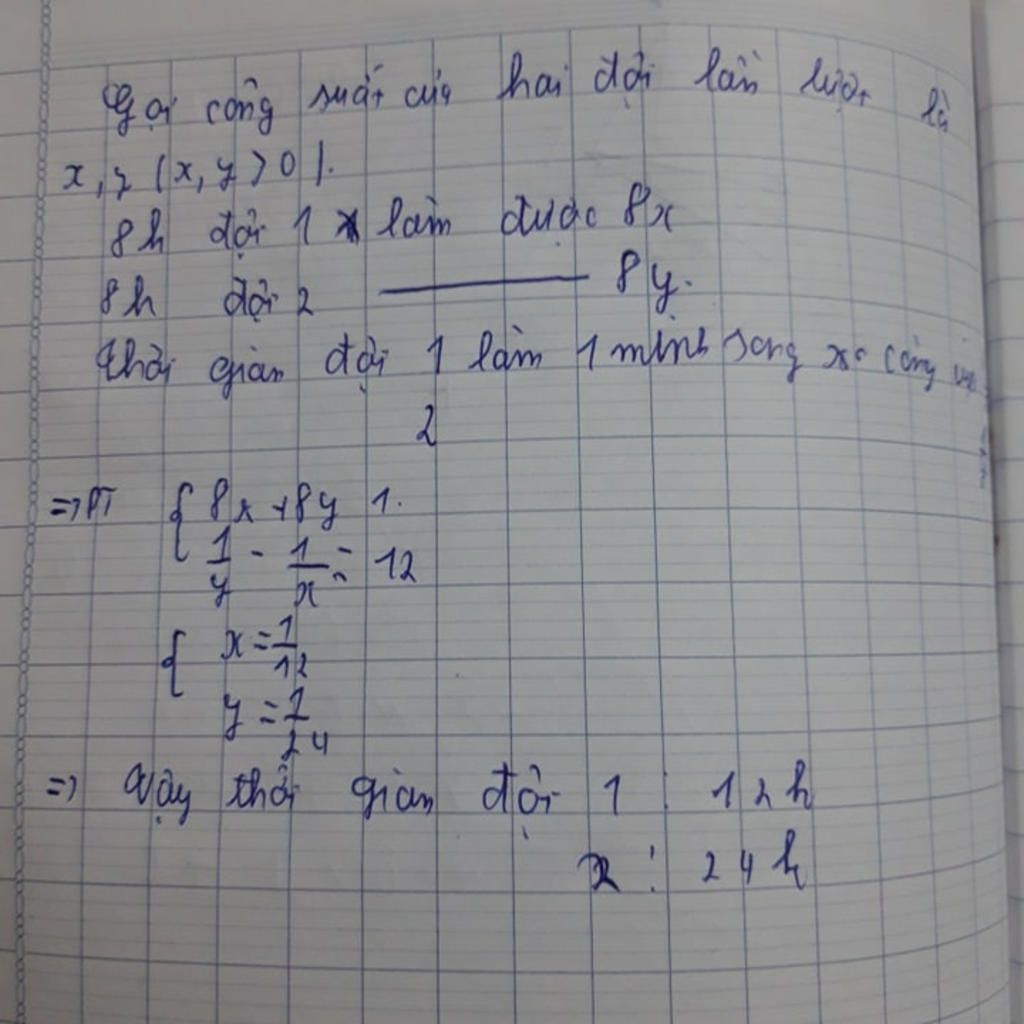 Gọi công suất của hai đội lần lượt là
x, y (x, y > 0).
8h đội 1 làm được 8x
8h đội 2 ——— 8y.
thời gian đội 1 làm 1 mình xong công
2
=> PT { 8x + 8y 1.
1/y - 1/x = 12
{ x = 1/12
y = 1/24
=> Vậy thời gian đội 1 : 12h
2 : 24h